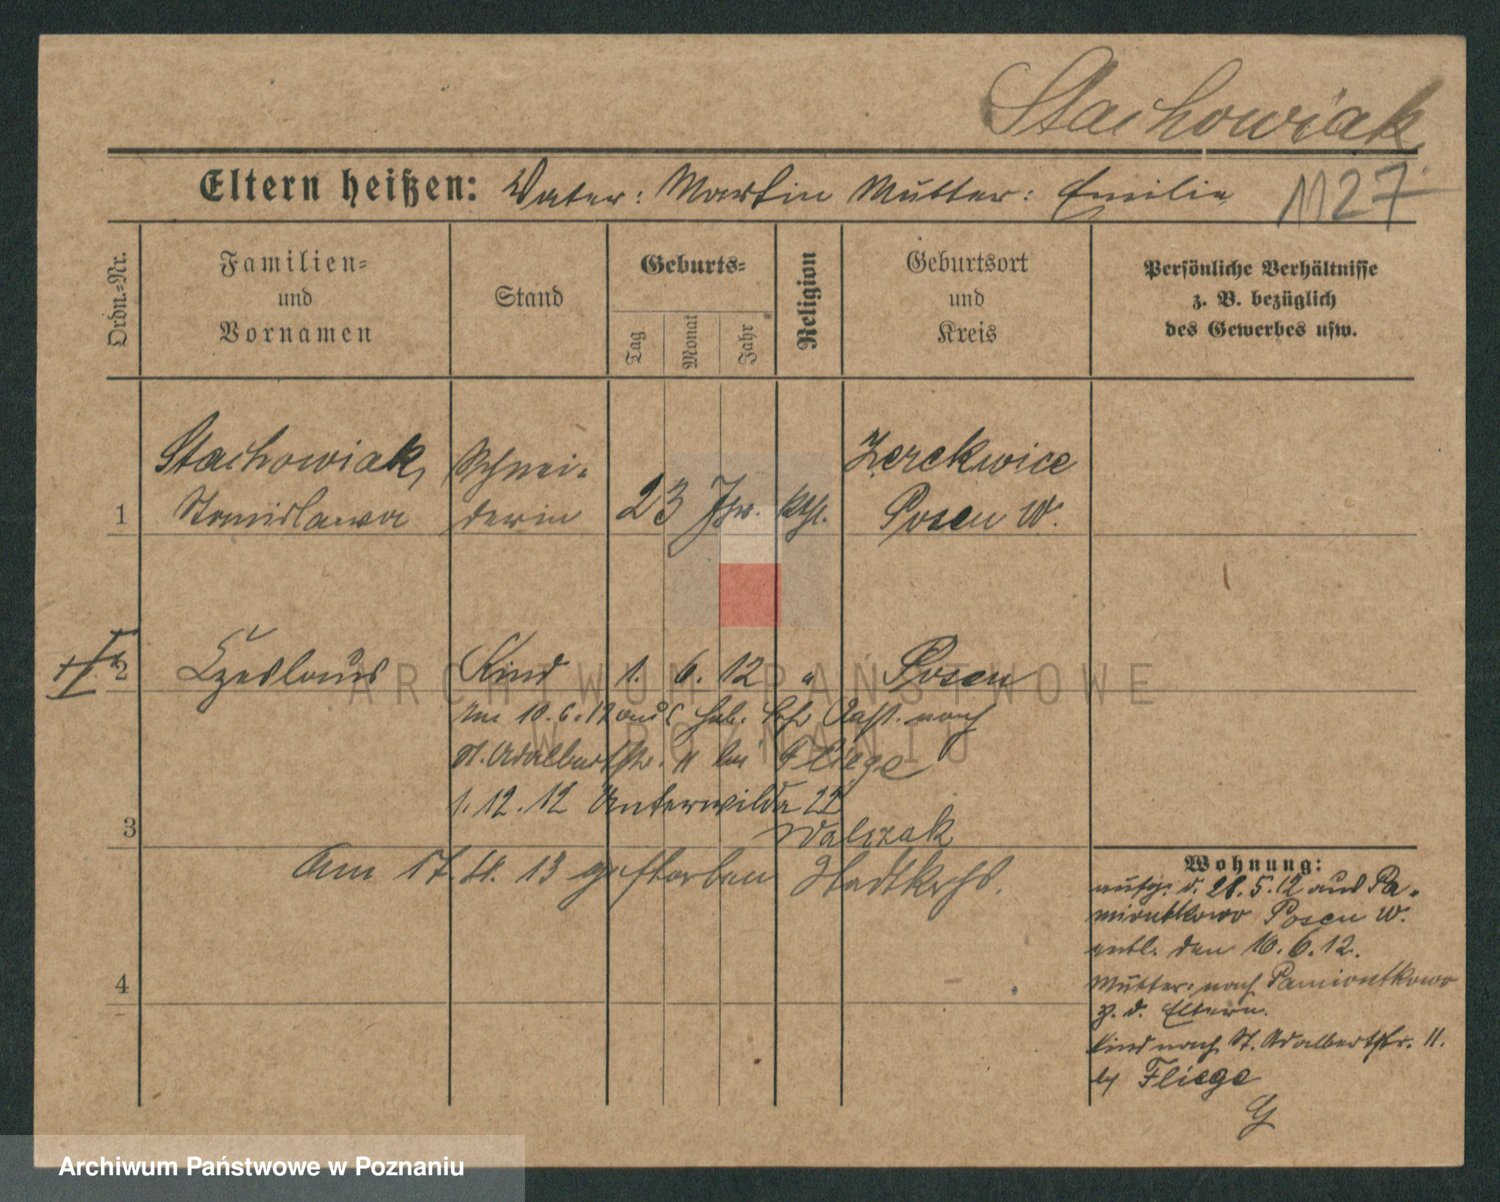 Stachowiak
Eltern heißen: Vater: Martin Mutter: Emilie 1127
Ordn.-Nr.
Familien- und Vornamen
Stand
Geburts-
Tag
Monat
Jahr
Religion
Geburtsort und Kreis
Persönliche Verhältnisse
z. B. bezüglich
des Gewerbes usw.
Stachowiak, Schnei- Zerekwice
1 Stanislawa derin 23 Jhr. kth. Posen W.
2 Czeslaus Kind 1. 6. 12 " Posen
Am 10.6.12 aus nach
St. Adalbertstr. 11 bei Fliege
1.12.12 Unterwilda 22
3 Walczak
Am 17. 13 gestorben Stadtkrhs.
4
Wohnung:
aufg. d. 28.5.12 aus Pa-
miontkowo Posen W.
entl. den 10.6.12.
Mutter: nach Pamiontkowo
z. d. Eltern.
Kind nach St. Adalbertstr. 11.
bei Fliege
G
ARCHIWUM PAŃSTWOWE
W POZNANIU
Archiwum Państwowe w Poznaniu